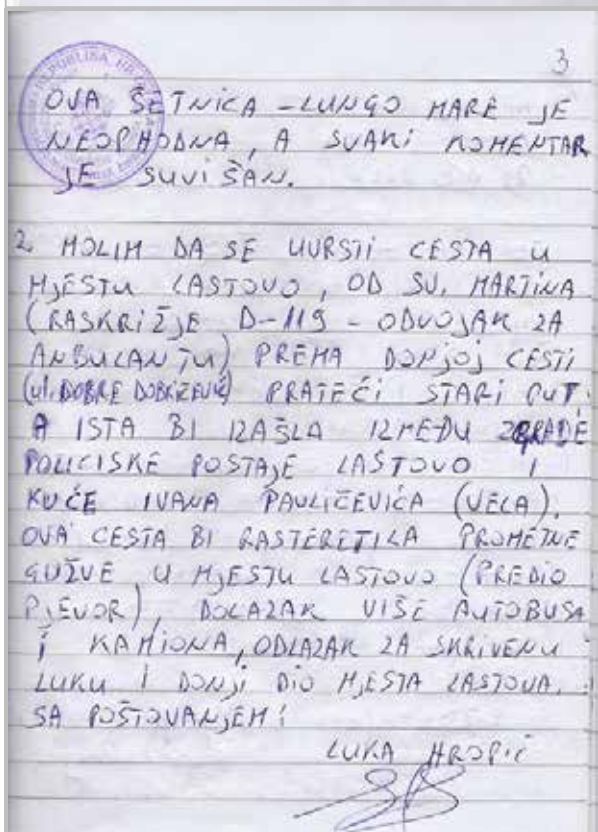 3
REPUBLIKA
OVA ŠETNICA - LUNGO MARE JE
NEOPHODNA, A SVAKI KOMENTAR
JE SUVIŠAN.
2. MOLIM DA SE UVRSTI CESTA U
MJESTU LASTOVO, OD SV. MARTINA
(RASKRIŽJE D-119 - ODVOJAK ZA
ANBULANTU) PREMA DONJOJ CESTI
(ul. DOBRE DOBRIČEVIĆ) PRATEĆI STARI PUT.
A ISTA BI IZAŠLA IZMEĐU ZGRADE
POLICISKE POSTAJE LASTOVO I
KUĆE IVANA PAVLIČEVIĆA (VELA).
OVA CESTA BI RASTERETILA PROMETNE
GUŽVE U MJESTU LASTOVO (PREDIO
PJEVOR), DOLAZAK VIŠE AUTOBUSA
I KAMIONA, ODLAZAK ZA SKRIVENU
LUKU I DONJI DIO MJESTA LASTOVA.
SA POŠTOVANJEM!
LUKA HROPIĆ